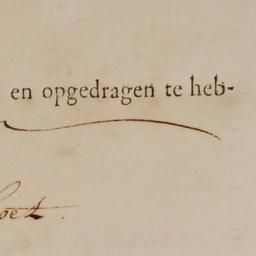 en opgedragen te heb-